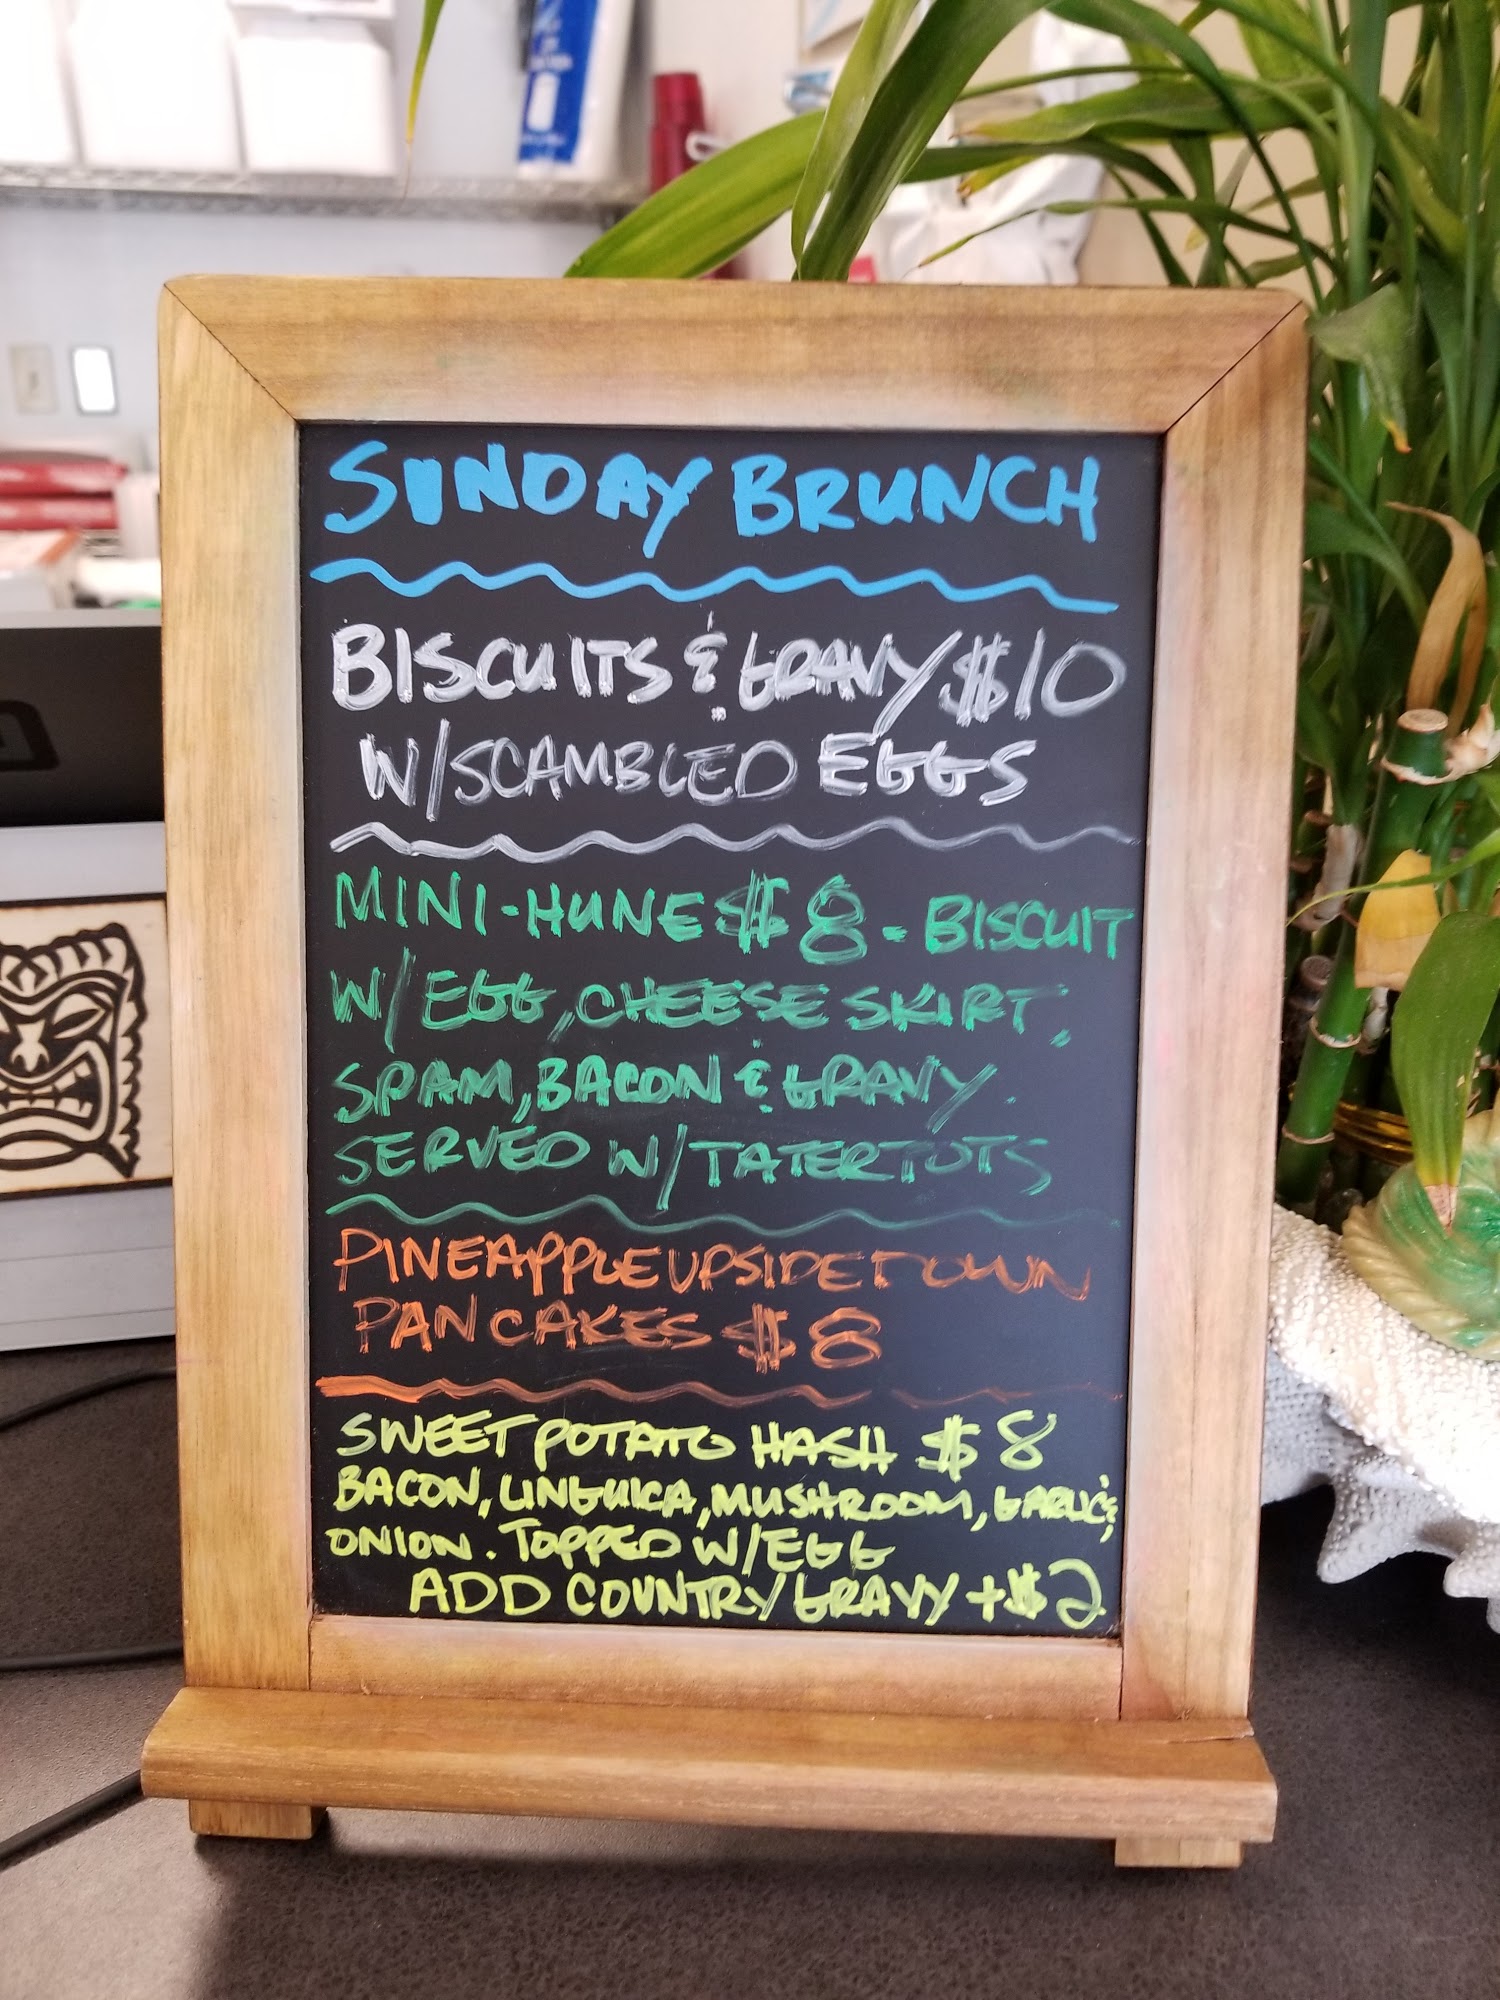 SUNDAY BRUNCH
BISCUITS & GRAVY $10
W/SCAMBLED EGGS
MINI-HUNE $8 - BISCUIT
W/ EGG, CHEESE SKIRT,
SPAM, BACON & GRAVY.
SERVED W/TATERTOTS
PINEAPPLE UPSIDE DOWN
PANCAKES $8
SWEET POTATO HASH $8
BACON, LINGUICA, MUSHROOM, GARLIC &
ONION. TOPPED W/EGG
ADD COUNTRY GRAVY +$2